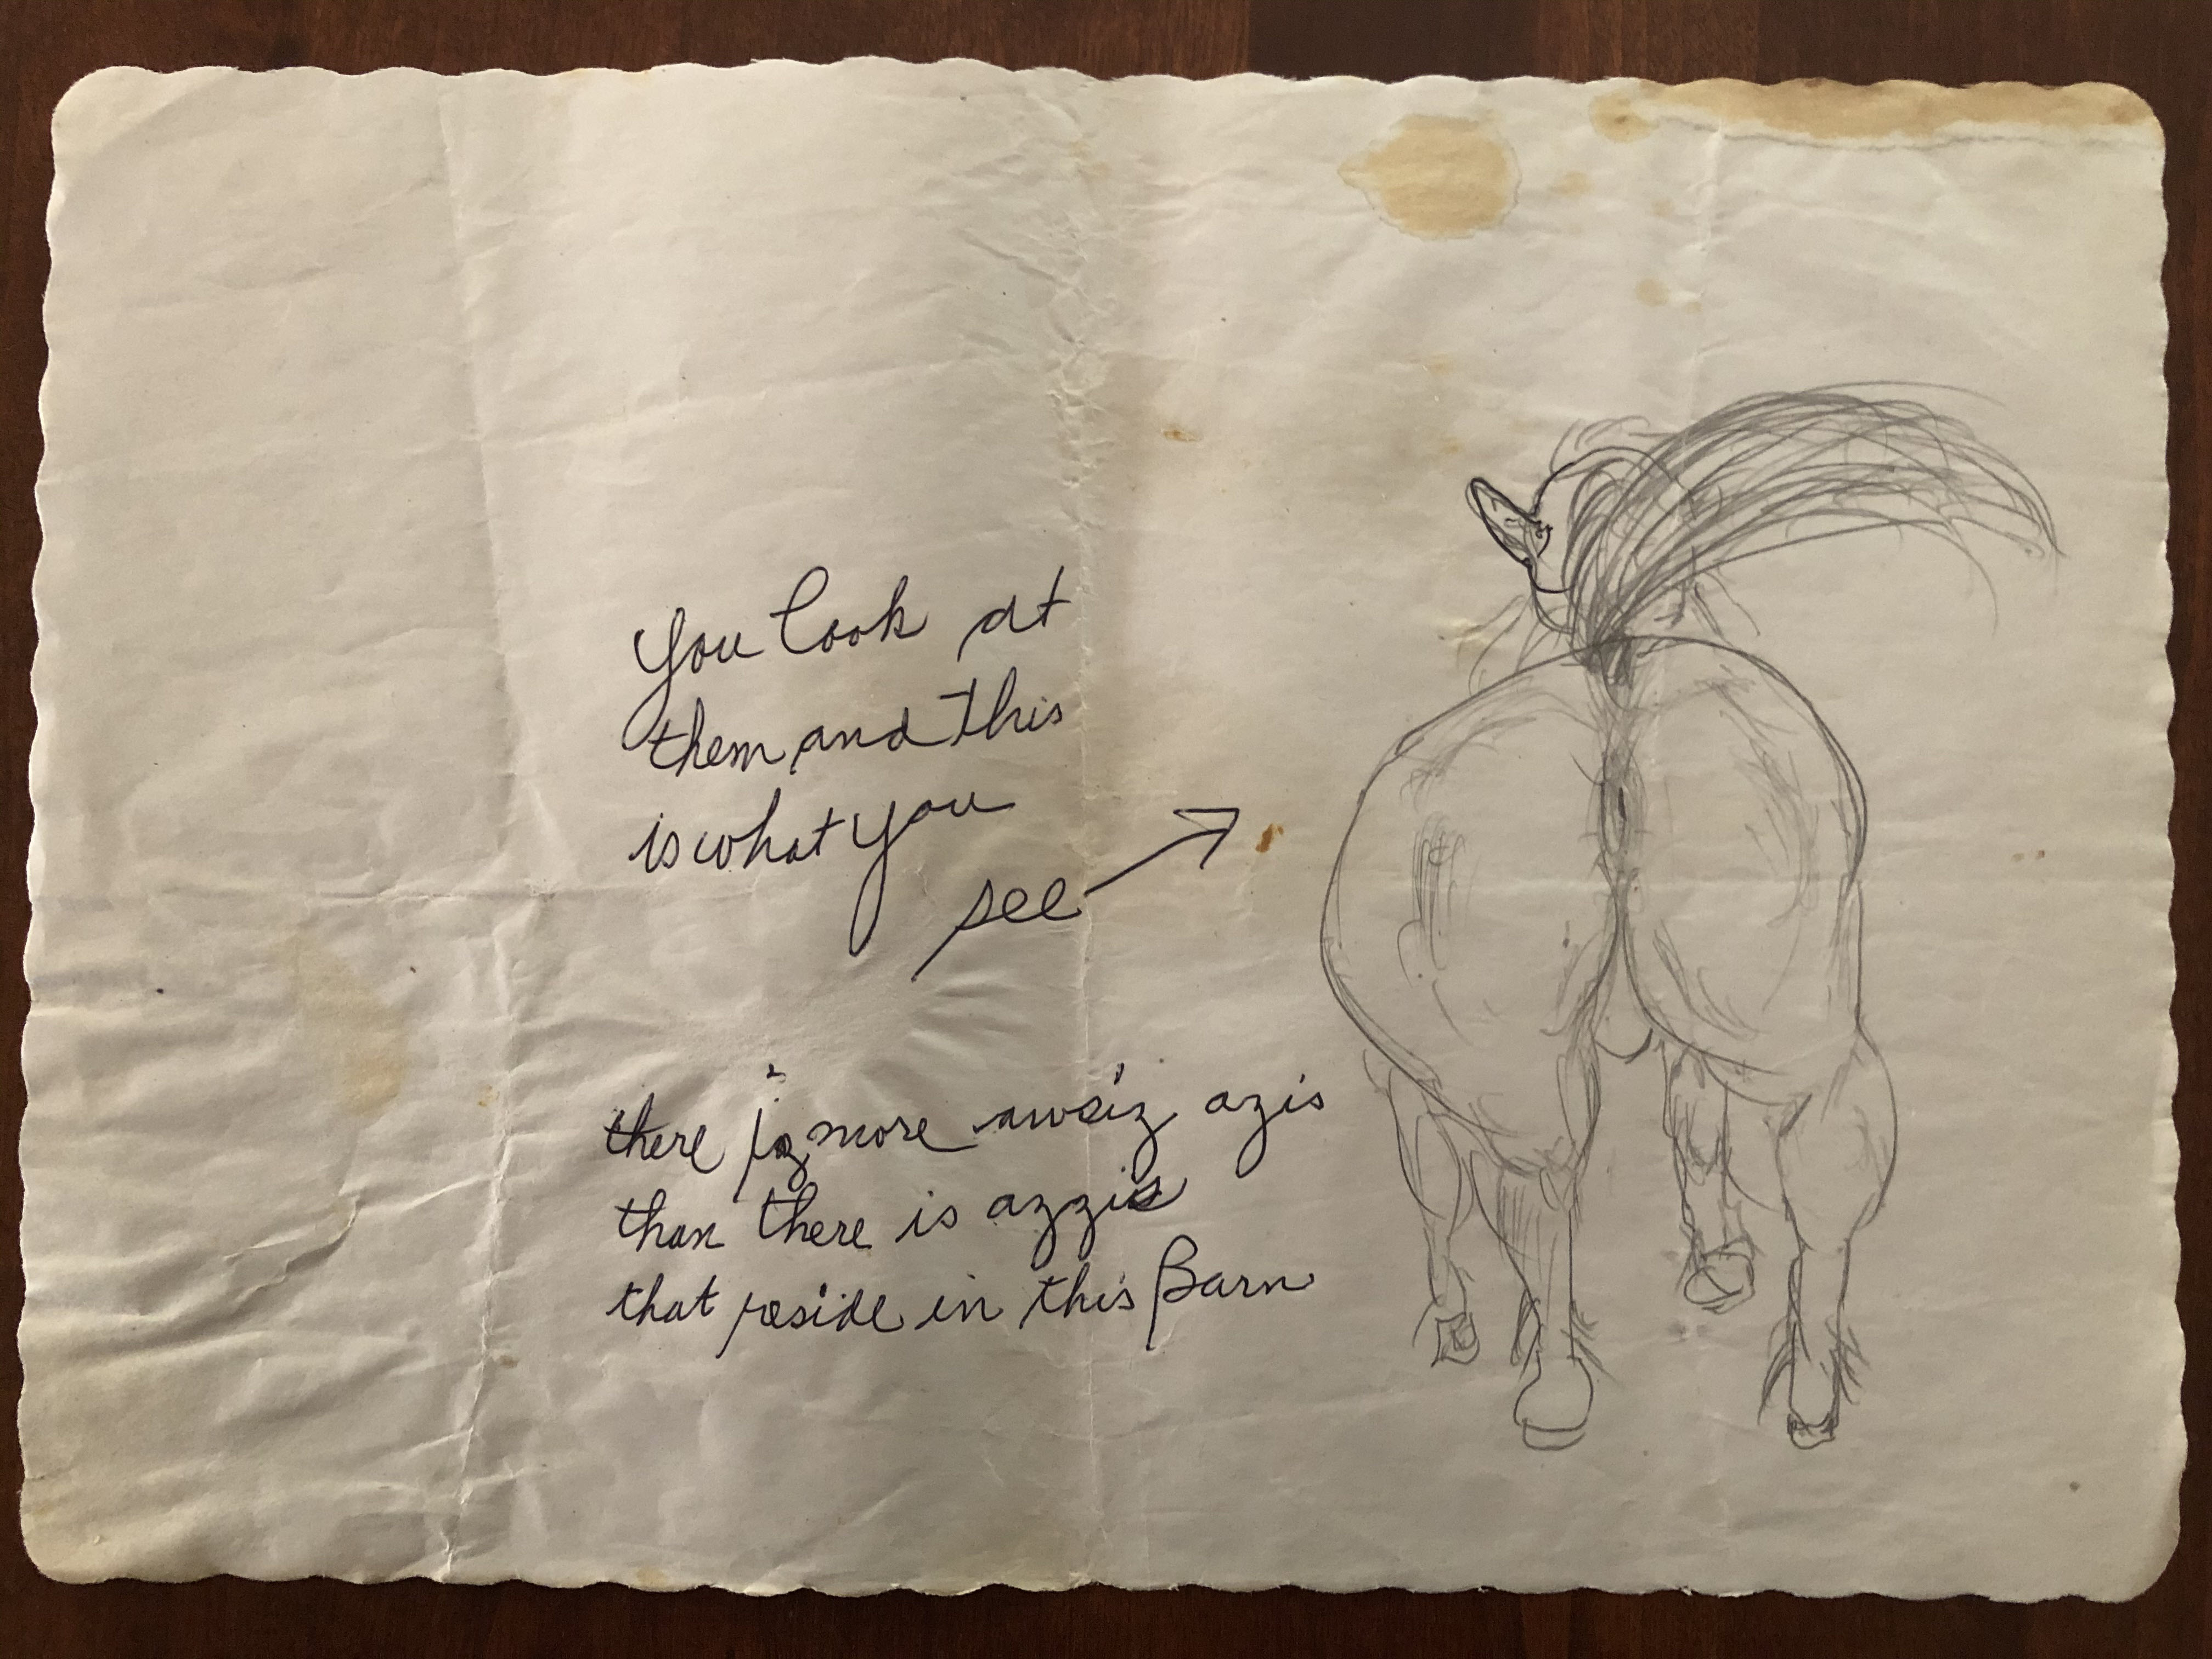 You look at
them and this
is what you
see
there is more awaiz azis
than there is azzis
that reside in this Barn